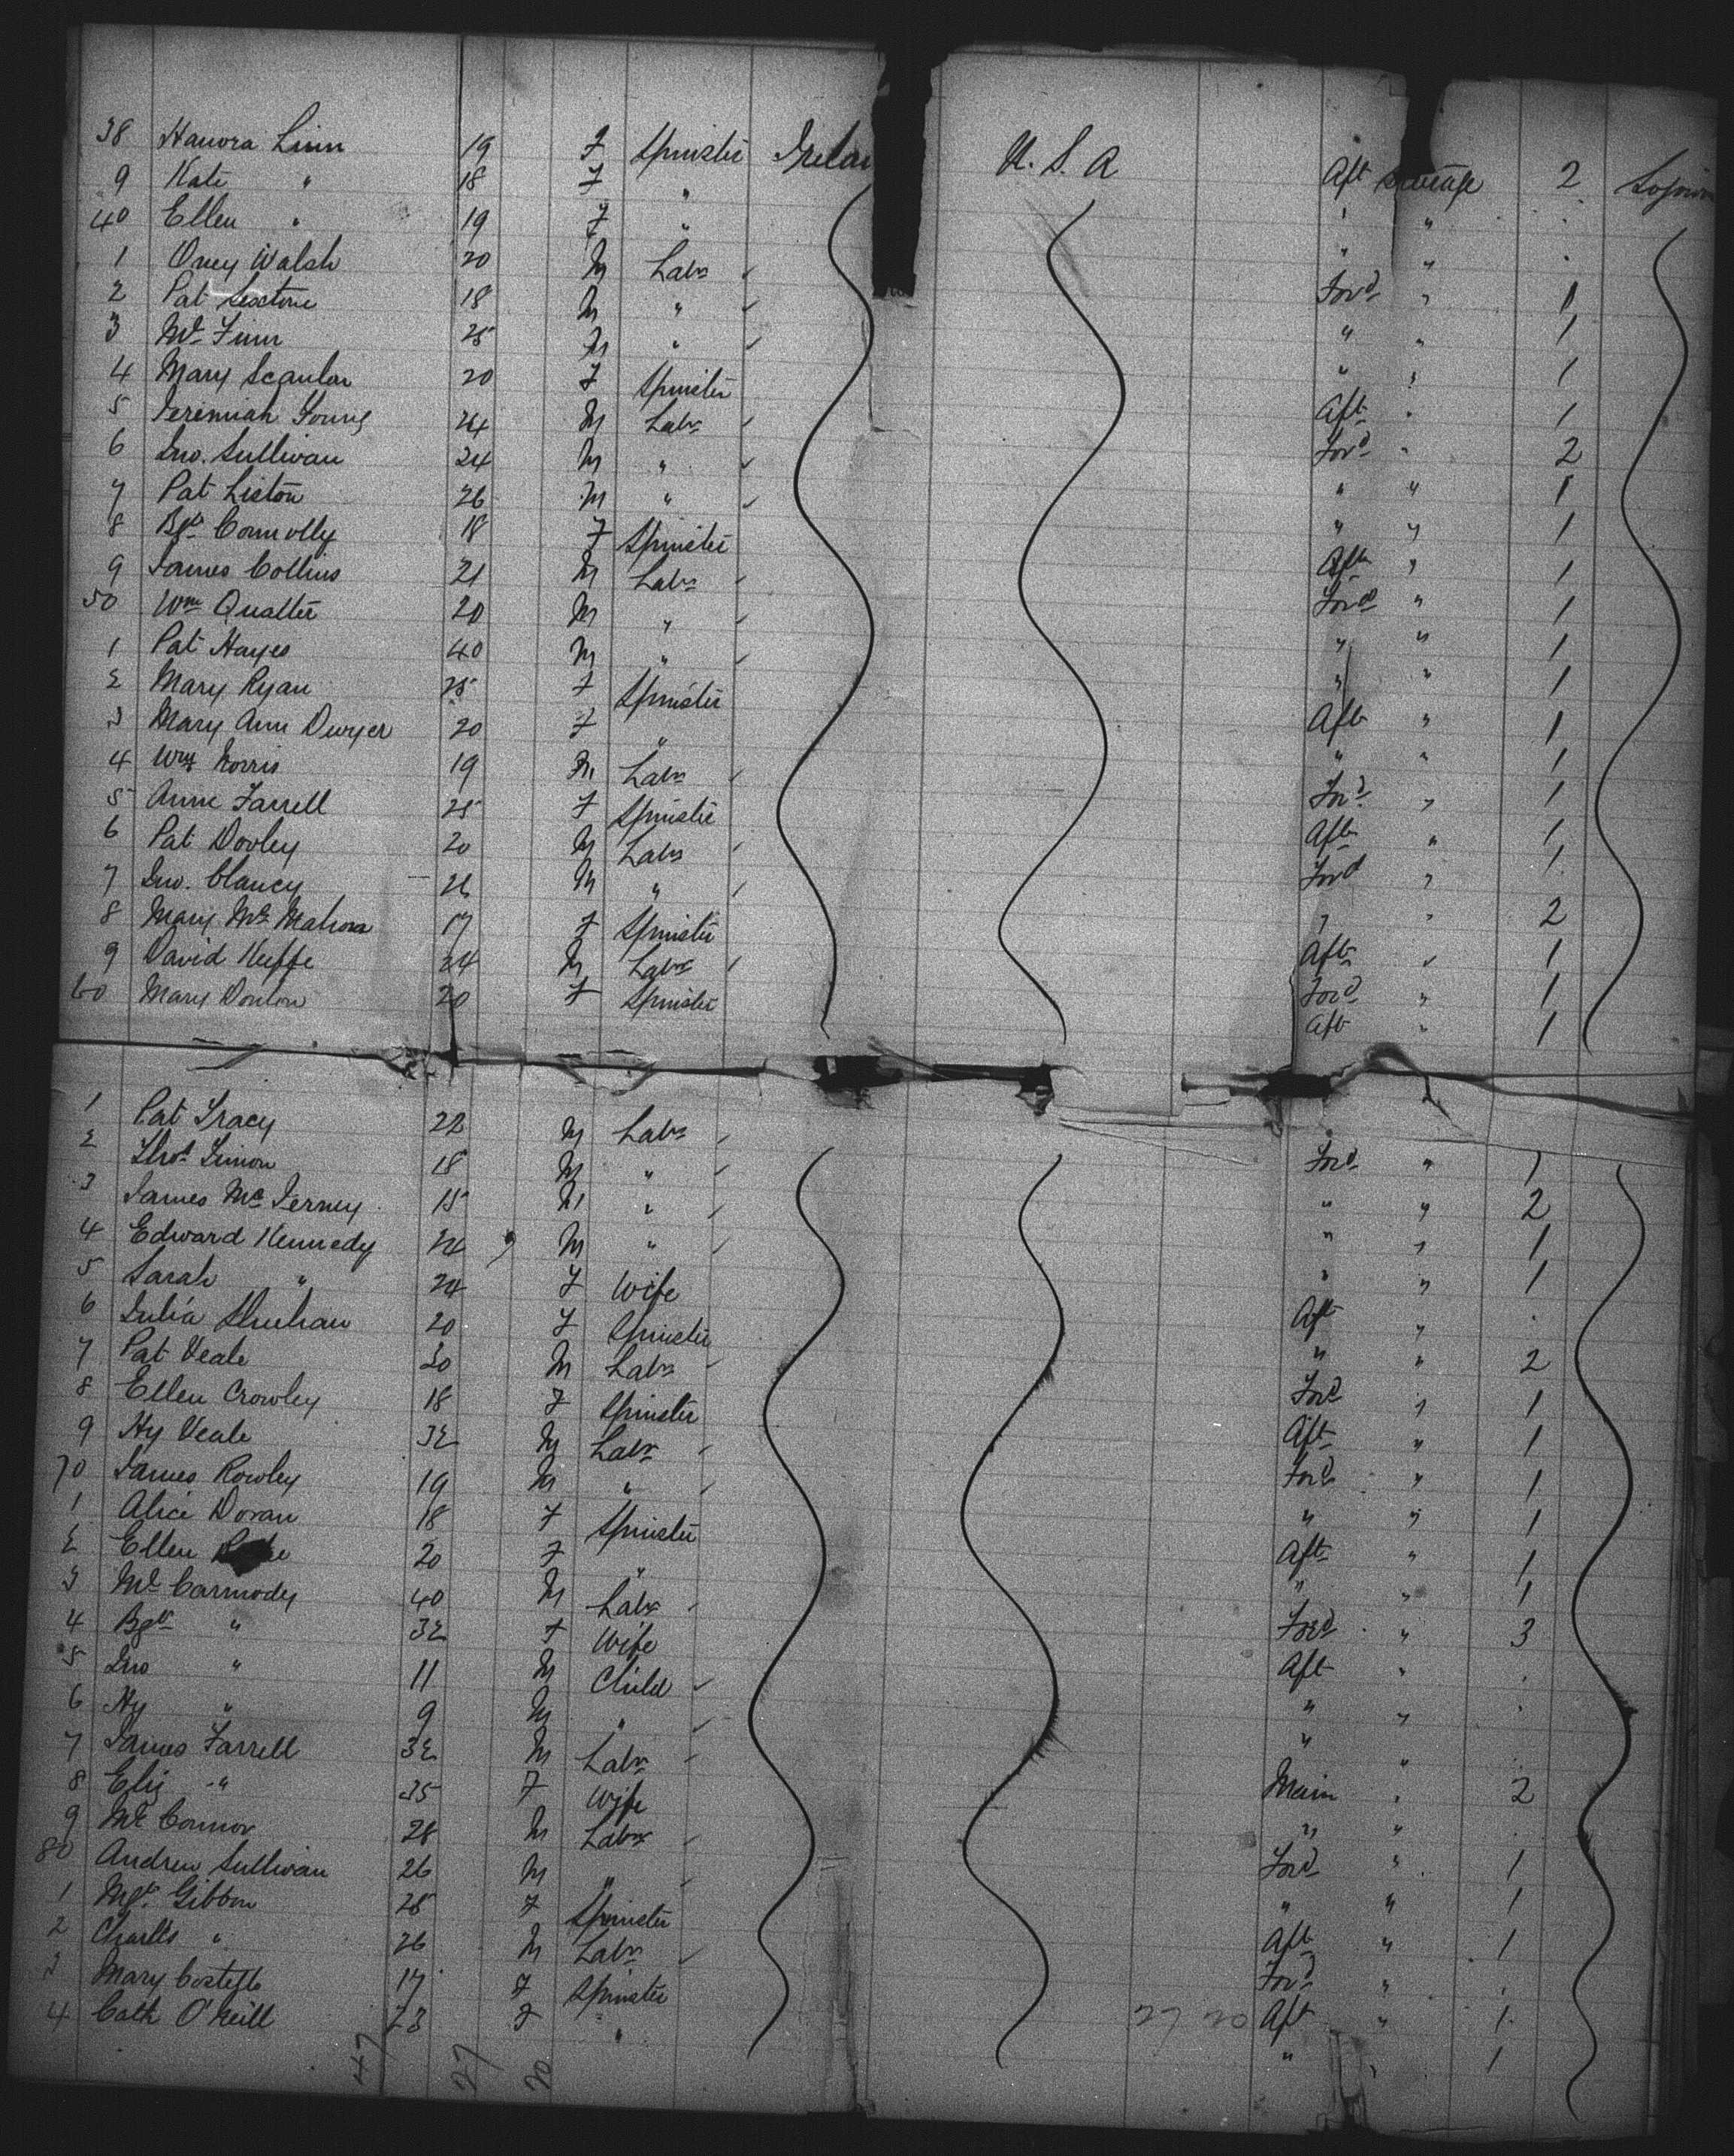 38 Hanora Linn 19 F Spinster Irelan U. S. A Aft Steerage 2 Sojourn
9 Kate " 18 F " " " .
40 Ellen " 19 F " " " .
1 Oney Walsh 20 M Labr Ford " 1
2 Pat Sextone 18 M " " " 1
3 Ml Finn 25 M " " " 1
4 Mary Scanlon 20 F Spinster Aft " 1
5 Jeremiah Young 24 M Labr Ford " 2
6 Jno. Sullivan 24 M " " " 1
7 Pat Liston 26 M " " " 1
8 Bgt Connolly 18 F Spinster Aft " 1
9 James Collins 21 M Labr Ford " 1
50 Wm Qualter 20 M " " " 1
1 Pat Hayes 40 M " " " 1
2 Mary Ryan 25 F Spinster Aft " 1
3 Mary Ann Dwyer 20 F " " " 1
4 Wm Norris 19 M Labr Ford " 1
5 Anne Farrell 25 F Spinster Aft " 1
6 Pat Dooley 20 M Labr Ford " 1
7 Jno. Clancy 26 M " " " 2
8 Mary McMahon 17 F Spinster Aft " 1
9 David Keffe 24 M Labr Ford " 1
60 Mary Donlon 20 F Spinster Aft " 1
1 Pat Tracy 22 M Labr Ford " 1
2 Thos Timon 18 M " " " 2
3 James McTerney 15 M " " " 1
4 Edward Kennedy 24 M " " " 1
5 Sarah " 24 F Wife Aft " .
6 Julia Sheehan 20 F Spinster " " 2
7 Pat Veale 30 M Labr Ford " 1
8 Ellen Crowley 18 F Spinster Aft " 1
9 Hy Veale 32 M Labr Ford " 1
70 James Rowley 19 M " " " 1
1 Alice Doran 18 F Spinster Aft " 1
2 Ellen 20 F " " " 1
3 Ml Carmody 40 M Labr Ford " 3
4 Bgt " 32 F Wife Aft " .
5 Jno " 11 M Child " " .
6 Hy " 9 M " " " .
7 James Farrell 32 M Labr Main " 2
8 Eliz " 35 F Wife " " .
9 Ml Connor 28 M Labr Ford " 1
80 Andrew Sullivan 26 M " " " 1
1 Mgt. Gibbon 25 F Spinster Aft " 1
2 Charles " 26 M Labr Ford " .
3 Mary Costello 17 F Spinster Aft " 1
4 Cath O'Neill 23 F " " " 1
27 20
47 27 20